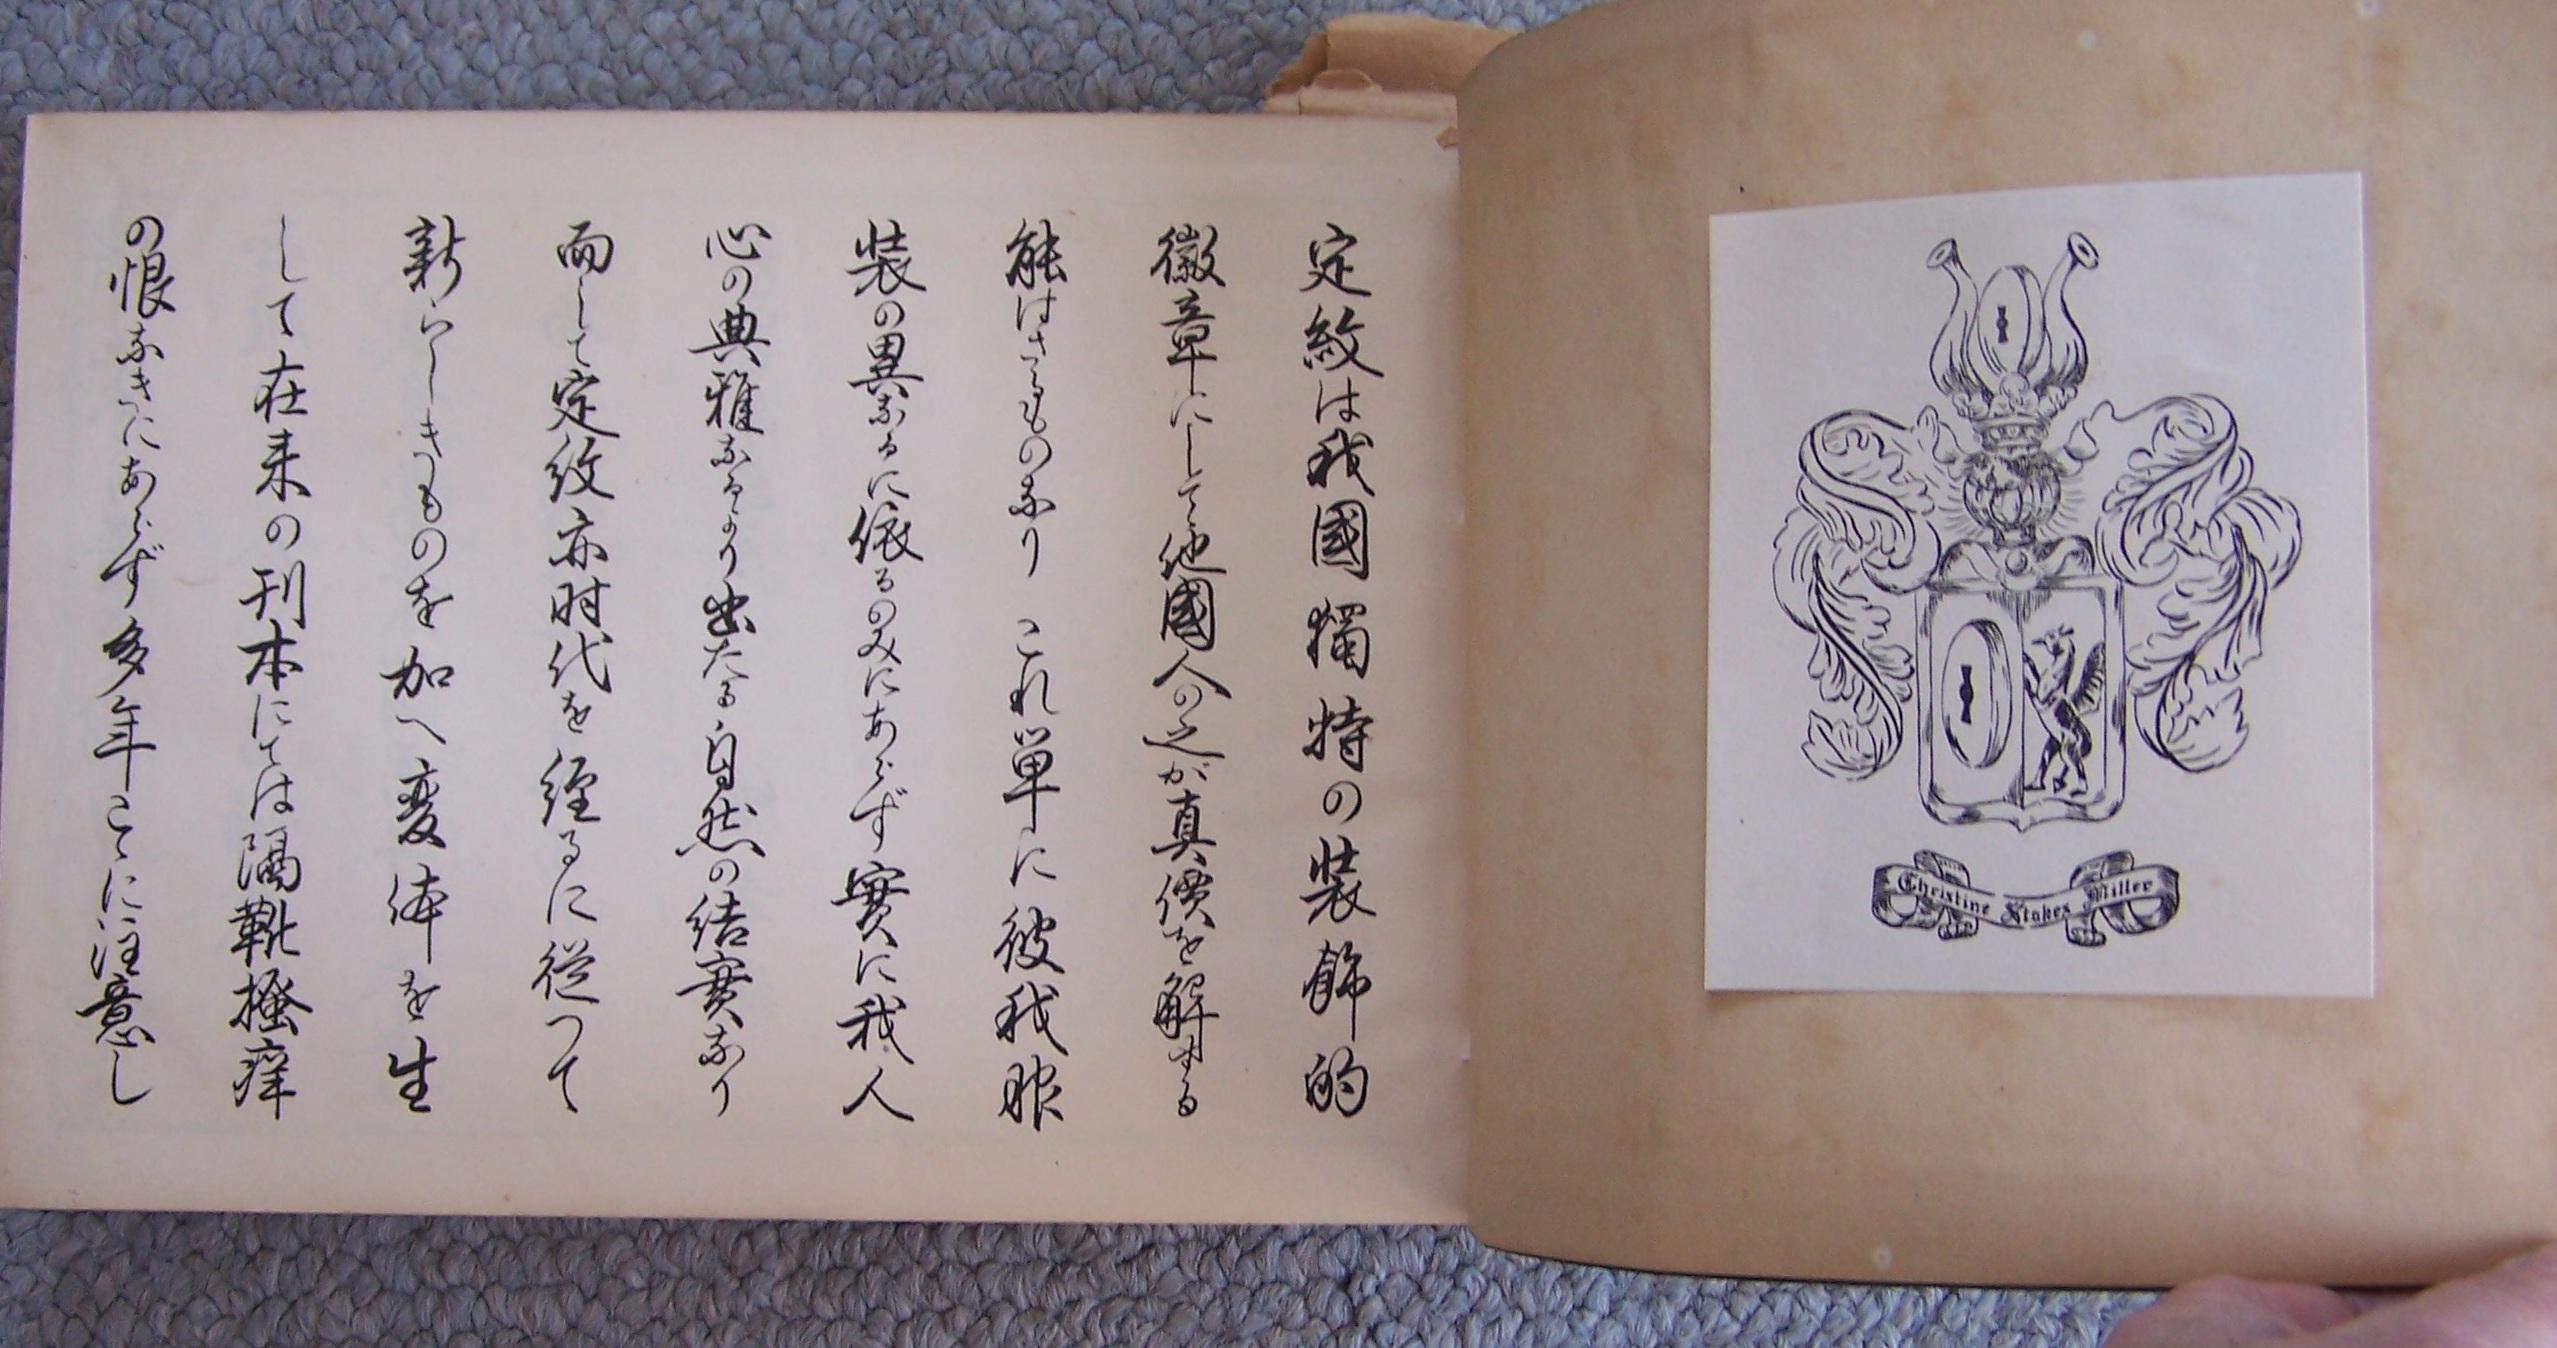 定紋は我國獨特の装飾的
徽章にして他國人の之が真價を解する
能はさるものなり これ単に彼我服
装の異なるに依るのみにあらず實に我人
心の典雅なるより出たる自然の結實なり
而して定紋亦时代を経るに従つて
新らしきものを加へ変体を生
して在来の刊本にては隔靴掻痒
の恨なきにあらず多年こゝに注意し
Christine Stokes Miller